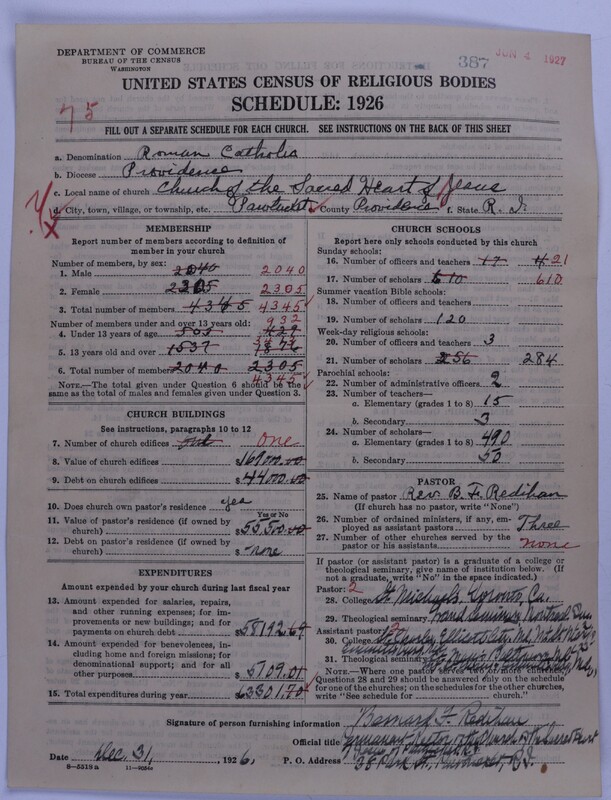 DEPARTMENT OF COMMERCE
BUREAU OF THE CENSUS
WASHINGTON
387
JUN 4 1927
UNITED STATES CENSUS OF RELIGIOUS BODIES
SCHEDULE: 1926
75
FILL OUT A SEPARATE SCHEDULE FOR EACH CHURCH. SEE INSTRUCTIONS ON THE BACK OF THIS SHEET
a. Denomination Roman Catholic
b. Diocese Providence
c. Local name of church Church of the Sacred Heart of Jesus
d. City, town, village, or township, etc. Pawtucket County Providence f. State R. I.
MEMBERSHIP
Report number of members according to definition of member in your church
Number of members, by sex:
1. Male 2040 2040
2. Female 2305 2305
3. Total number of members 4345 4345
Number of members under and over 13 years old:
932
4. Under 13 years of age 503 429
5. 13 years old and over 1537 1876
6. Total number of members 2040 2305
4345
NOTE.—The total given under Question 6 should be the same as the total of males and females given under Question 3.
CHURCH BUILDINGS
See instructions, paragraphs 10 to 12
7. Number of church edifices one
8. Value of church edifices $169000.00
9. Debt on church edifices $44000.00
10. Does church own pastor's residence? yes
Yes or No
11. Value of pastor's residence (if owned by church) $55500.00
12. Debt on pastor's residence (if owned by church) $ none
EXPENDITURES
Amount expended by your church during last fiscal year
13. Amount expended for salaries, repairs, and other running expenses; for improvements or new buildings; and for payments on church debt $58192.69
14. Amount expended for benevolences, including home and foreign missions; for denominational support; and for all other purposes $5109.01
15. Total expenditures during year 63301.70
CHURCH SCHOOLS
Report here only schools conducted by this church
Sunday schools:
16. Number of officers and teachers 17 21
17. Number of scholars 610 610
Summer vacation Bible schools:
18. Number of officers and teachers
19. Number of scholars 120
Week-day religious schools:
20. Number of officers and teachers 3
21. Number of scholars 256 284
Parochial schools:
22. Number of administrative officers 2
23. Number of teachers—
a. Elementary (grades 1 to 8) 15
b. Secondary 3
24. Number of scholars—
a. Elementary (grades 1 to 8) 490
b. Secondary 50
PASTOR
25. Name of pastor Rev. B. F. Redihan
(If church has no pastor, write "None")
26. Number of ordained ministers, if any, employed as assistant pastors Three
27. Number of other churches served by the pastor or his assistants none
If pastor (or assistant pastor) is a graduate of a college or theological seminary, give name of institution below. (If not a graduate, write "No" in the space indicated.)
Pastor: 2
28. College St. Michaels Toronto, Ca.
29. Theological seminary Grand Seminary Montreal
Assistant pastor:
30. College
31. Theological seminary
NOTE.—Where one pastor serves two or more churches, Questions 28 and 29 should be answered only on the schedule for one of the churches; on the schedules for the other churches, write "See schedule for church."
Signature of person furnishing information Bernard F. Redihan
Official title Permanent Rector of the Church of the Sacred Heart
Date Dec. 31, 1926,
P. O. Address 38 Park St., Pawtucket, R.I.
8—5519a